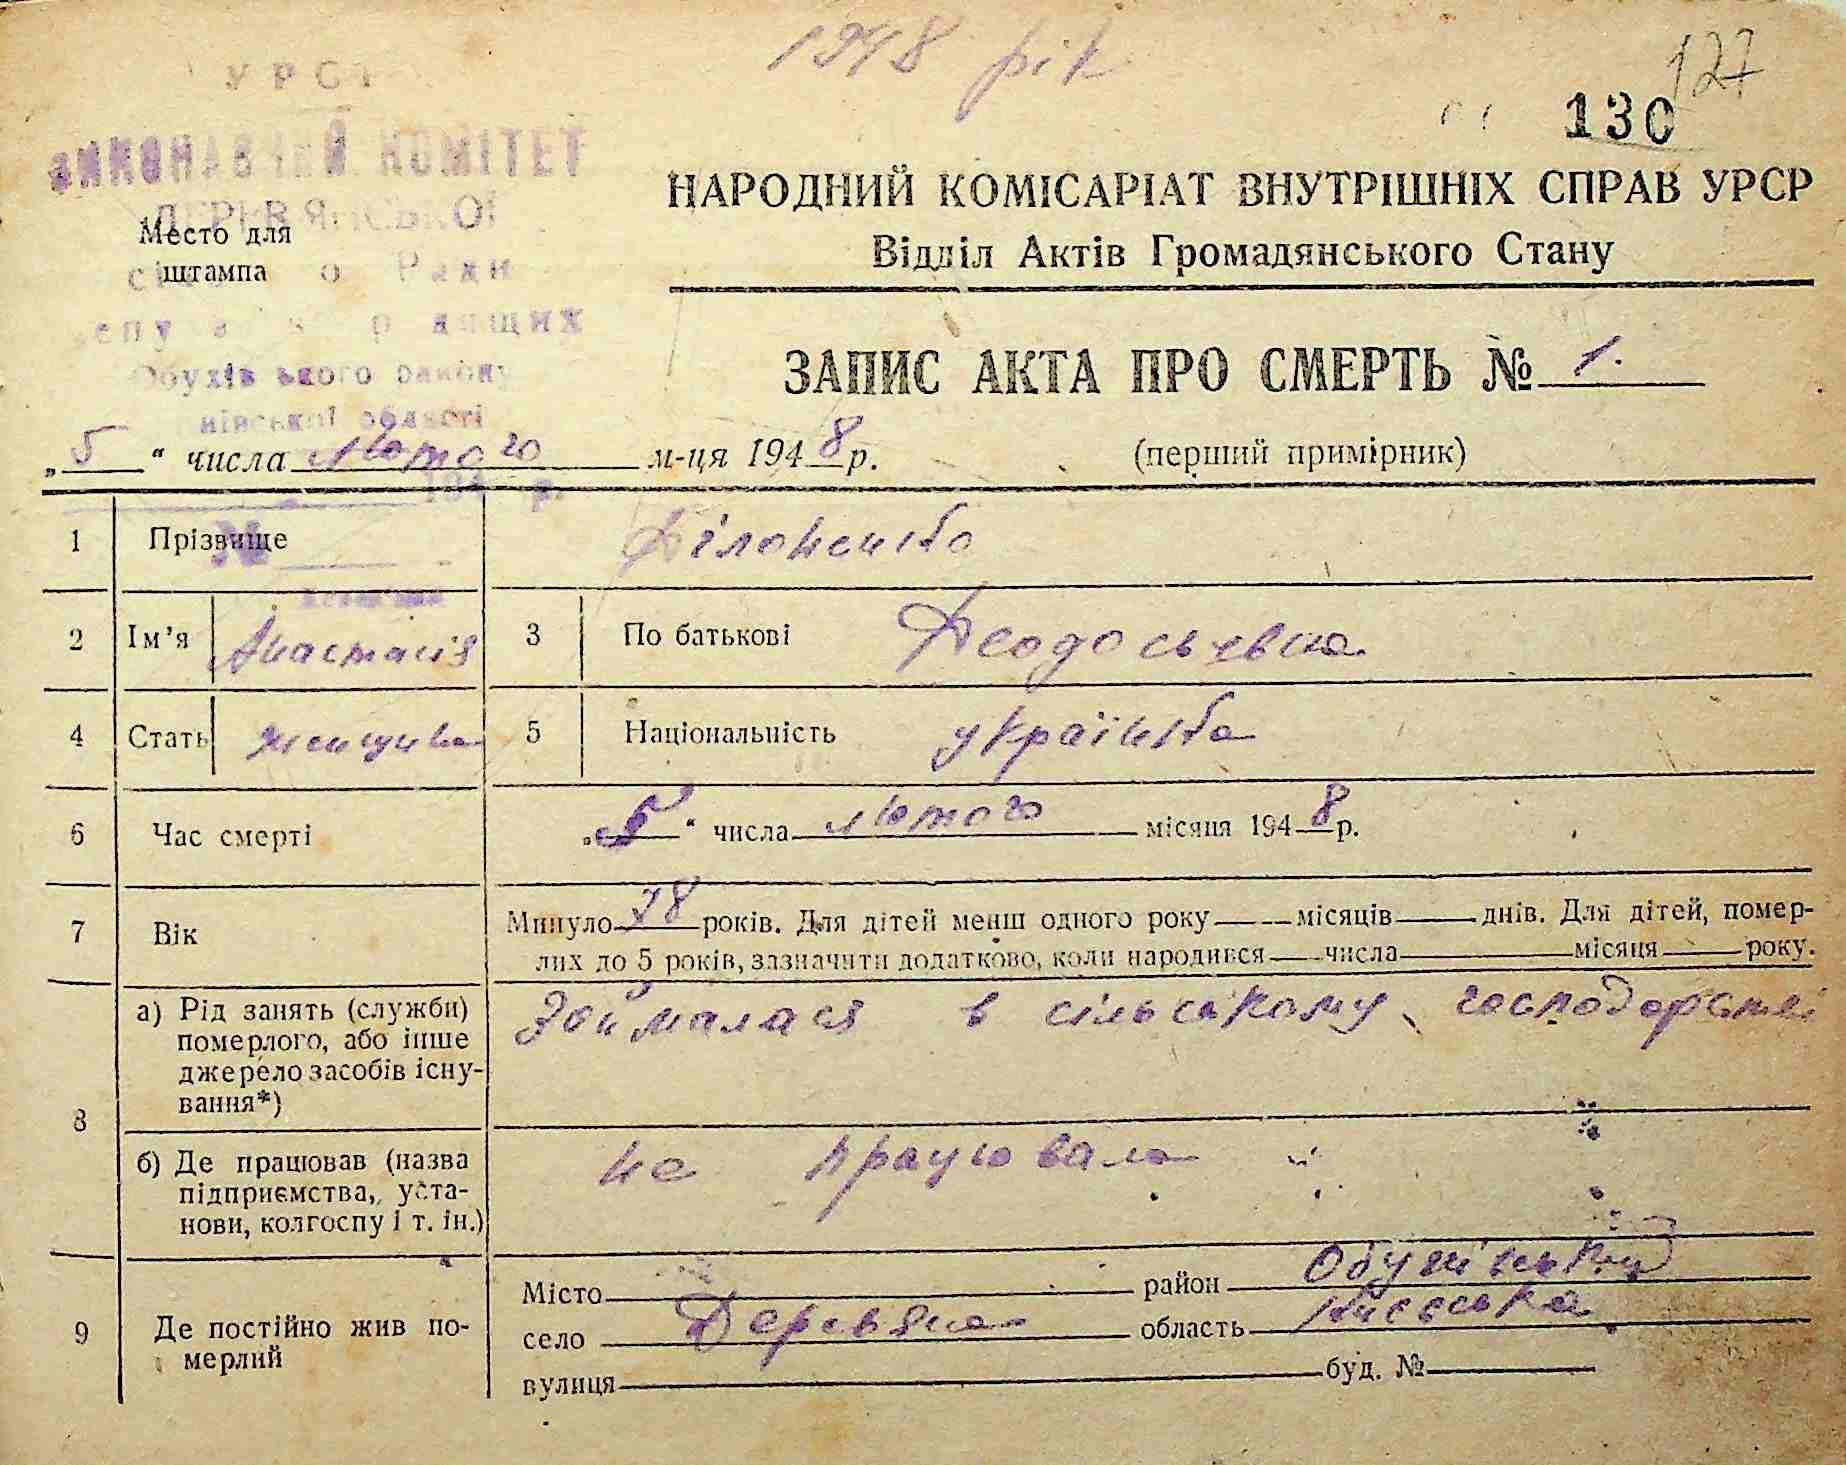 1948 рік
127
130
УРСР
ВИКОНАВЧИЙ КОМІТЕТ
ДЕРЕВ'ЯНСЬКОЇ
Место для
штампа
Ради
Обухівського району
Київської області
НАРОДНИЙ КОМІСАРІАТ ВНУТРІШНІХ СПРАВ УРСР
Відділ Актів Громадянського Стану
ЗАПИС АКТА ПРО СМЕРТЬ № 1.
„5“ числа лютого м-ця 1948 р. (перший примірник)
194 р.
№
1 Прізвище
2 Ім’я Анастасія 3 По батькові Феодосьевна
4 Стать женщина 5 Національність українка
6 Час смерті „5“ числа лютого місяця 1948 р.
7 Вік Минуло 78 років. Для дітей менш одного року місяців днів. Для дітей, помер-
лих до 5 років, зазначити додатково, коли народився числа місяця року.
8 а) Рід занять (служби) померлого, або інше джерело засобів існу-вання*) Займалася в сільському господарстві
б) Де працював (назва підприємства, уста-нови, колгоспу і т. ін.) не працювала
9 Де постійно жив по-мерлий
Місто район Обухівський
село Деревяна область Киевська
вулиця буд. №